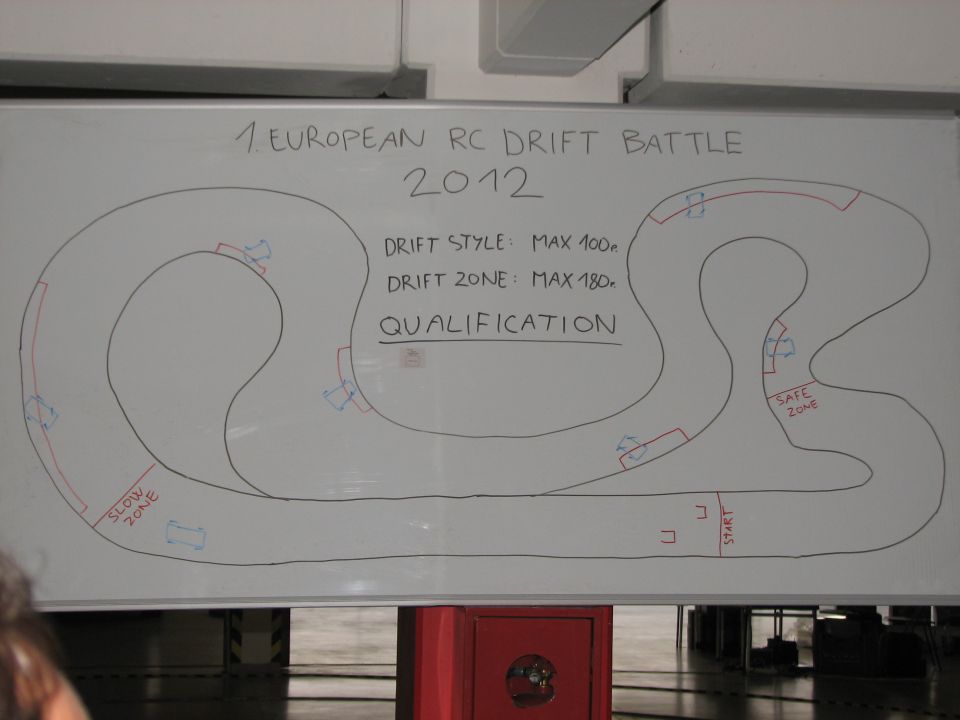 1. EUROPEAN RC DRIFT BATTLE
2012
DRIFT STYLE: MAX 100P.
DRIFT ZONE: MAX 180P.
QUALIFICATION
SAFE
ZONE
SLOW
ZONE
START